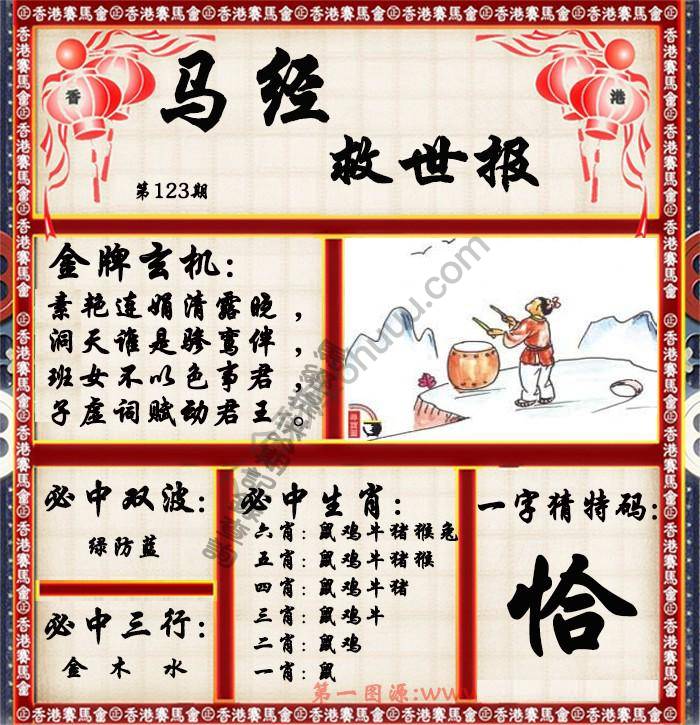 香港賽馬會
香
港
马经
救世报
第123期
金牌玄机：
素艳连娟清露晓，
洞天谁是骖鸾伴，
班女不以色事君，
子虚词赋动君王。
必中双波：
绿防蓝
必中三行：
金 木 水
必中生肖：
六肖：鼠鸡牛猪猴兔
五肖：鼠鸡牛猪猴
四肖：鼠鸡牛猪
三肖：鼠鸡牛
二肖：鼠鸡
一肖：鼠
一字猜特码：
恰
第一图源:www